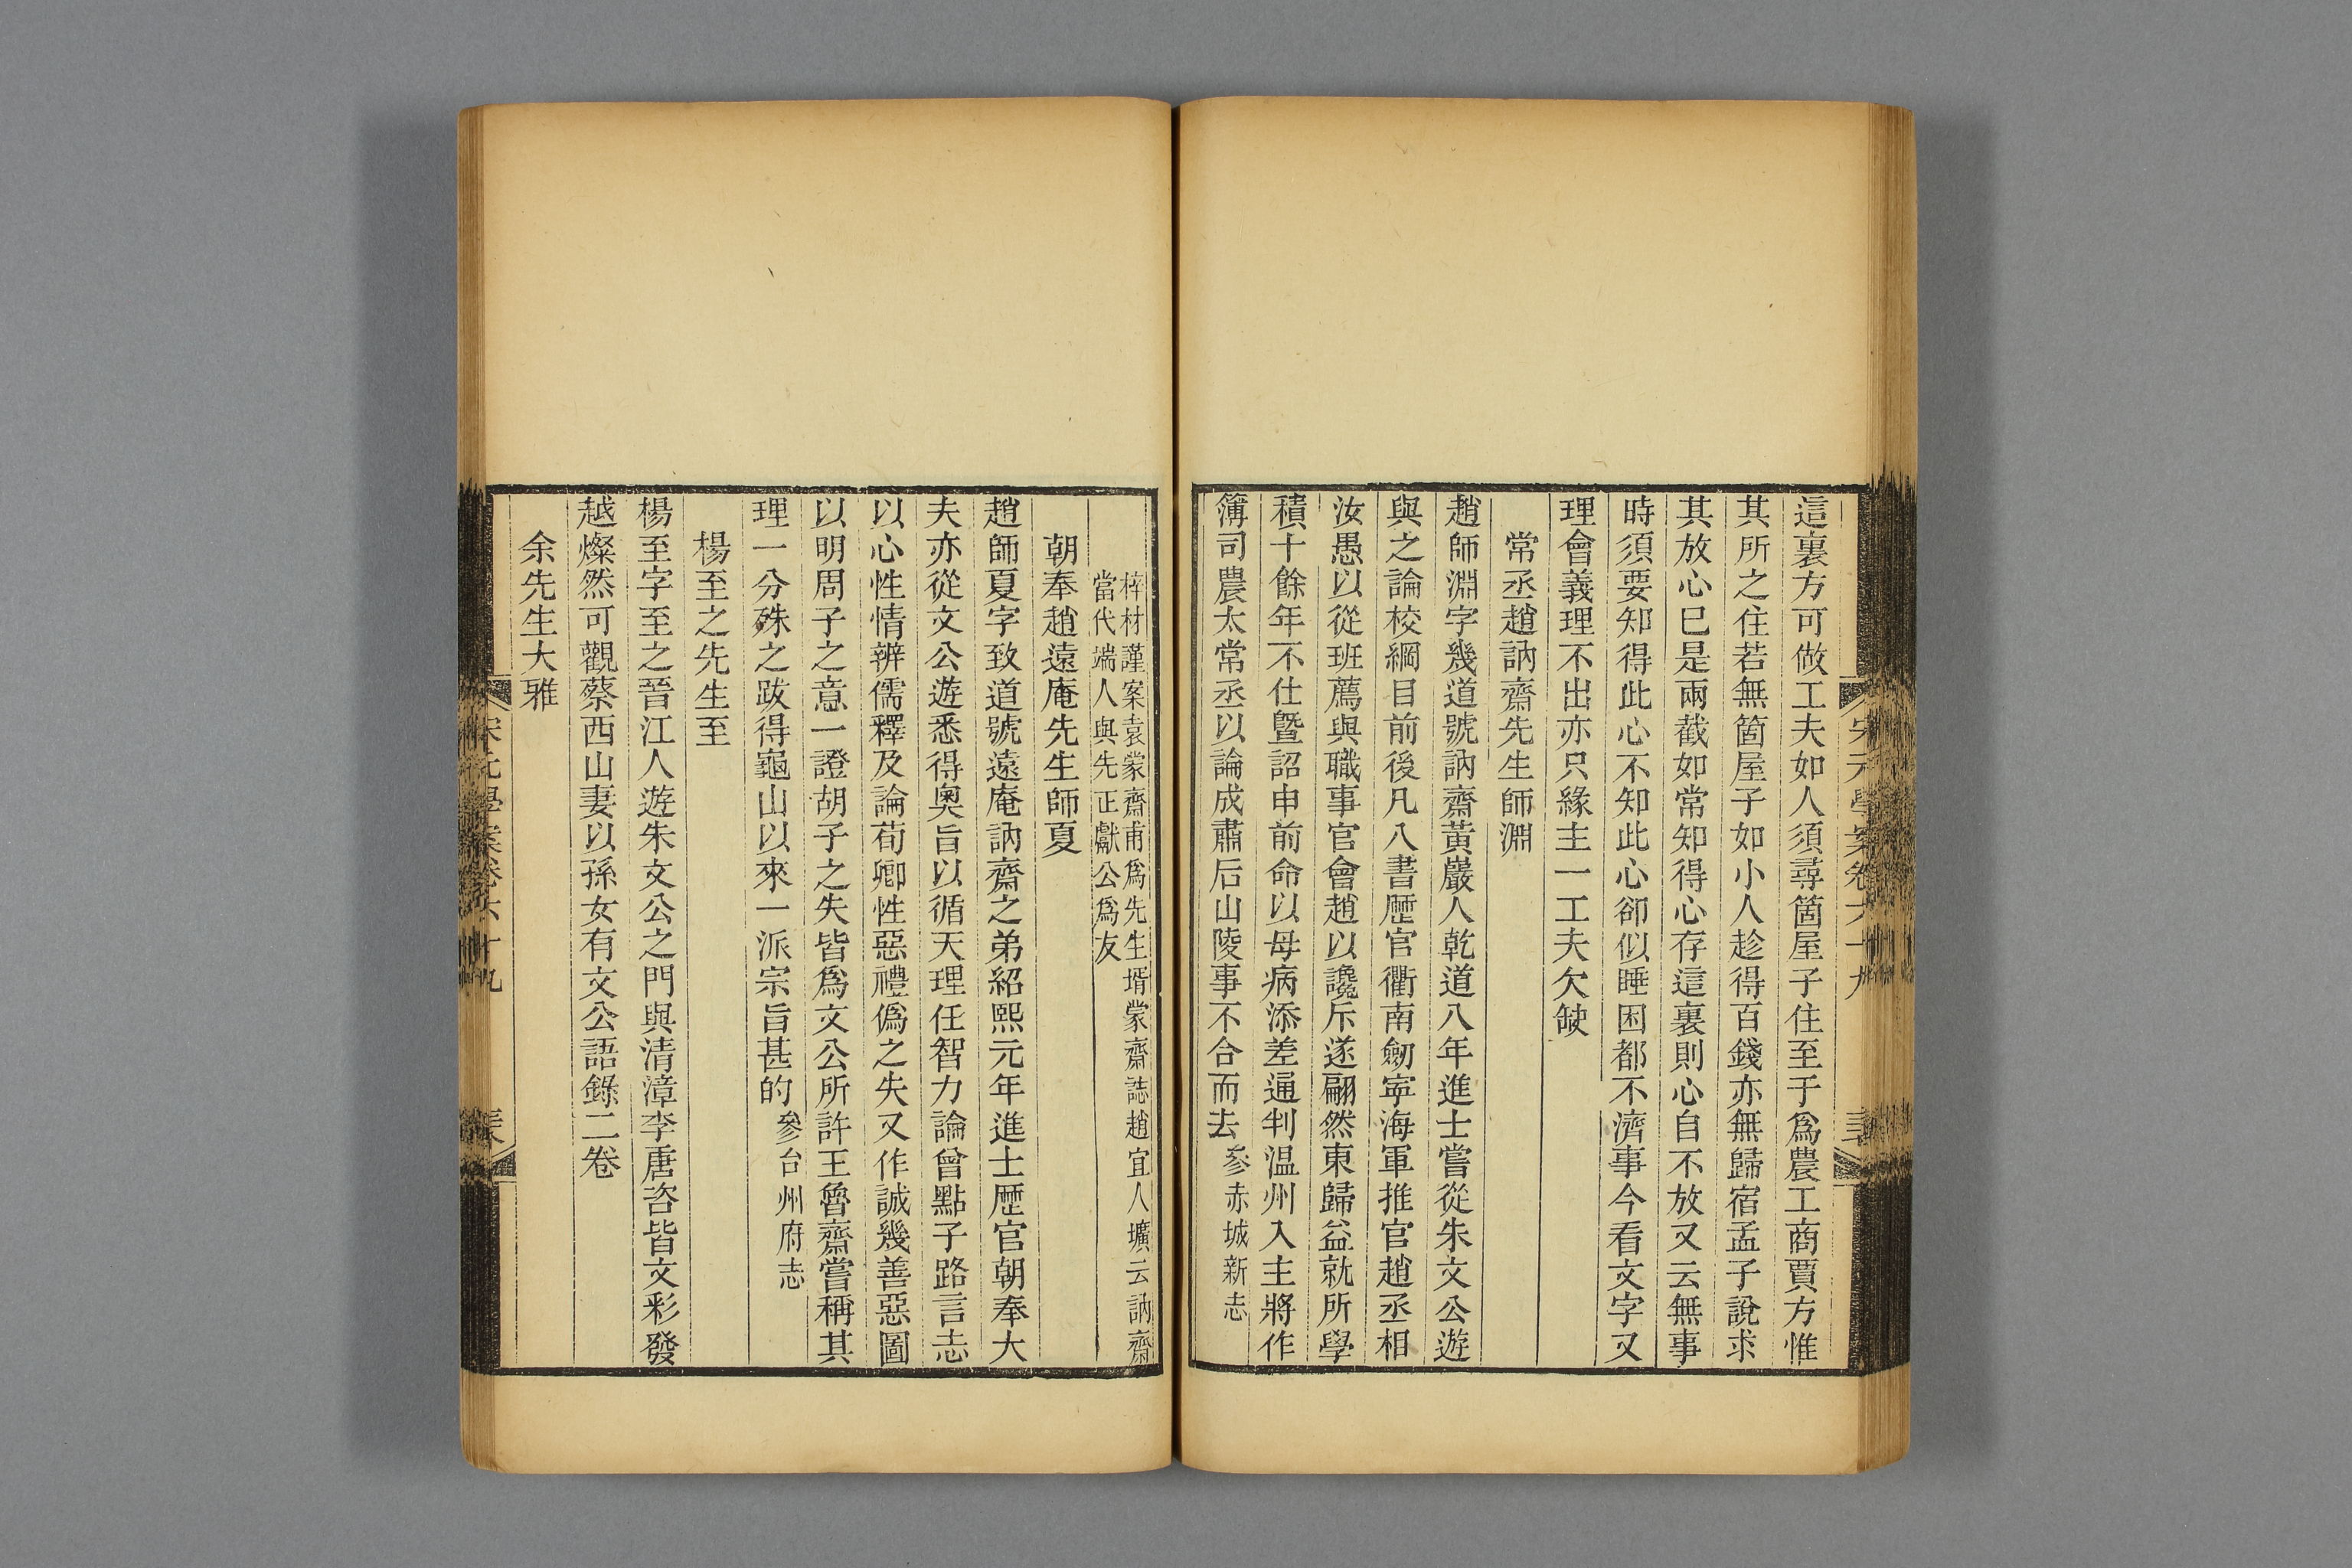 這裏方可做工夫如人須尋箇屋子住至于爲農工商賈方惟
其所之住若無箇屋子如小人趁得百錢亦無歸宿孟子說求
其放心巳是兩截如常知得心存這裏則心自不放又云無事
時須要知得此心不知此心卻似睡困都不濟事今看文字又
理會義理不出亦只緣主一工夫欠缺
常丞趙訥齋先生師淵
趙師淵字幾道號訥齋黃巖人乾道八年進士嘗從朱文公遊
與之論校綱目前後凡八書歷官衢南劒寧海軍推官趙丞相
汝愚以從班薦與職事官會趙以讒斥遂翩然東歸益就所學
積十餘年不仕曁詔申前命以母病添差通判温州入主將作
簿司農太常丞以論成肅后山陵事不合而去參赤城新志
梓材謹案袁蒙齋甫爲先生壻蒙齋誌趙宜人壙云訥齋
當代端人與先正獻公爲友
朝奉趙遠庵先生師夏
趙師夏字致道號遠庵訥齋之弟紹熙元年進士歷官朝奉大
夫亦從文公遊悉得奧旨以循天理任智力論曾點子路言志
以心性情辨儒釋及論荀卿性惡禮僞之失又作誠幾善惡圖
以明周子之意一證胡子之失皆爲文公所許王魯齋嘗稱其
理一分殊之跋得龜山以來一派宗旨甚的參台州府志
楊至之先生至
楊至字至之晉江人遊朱文公之門與清漳李唐咨皆文彩發
越燦然可觀蔡西山妻以孫女有文公語錄二卷
余先生大雅
宋元學案卷六十九